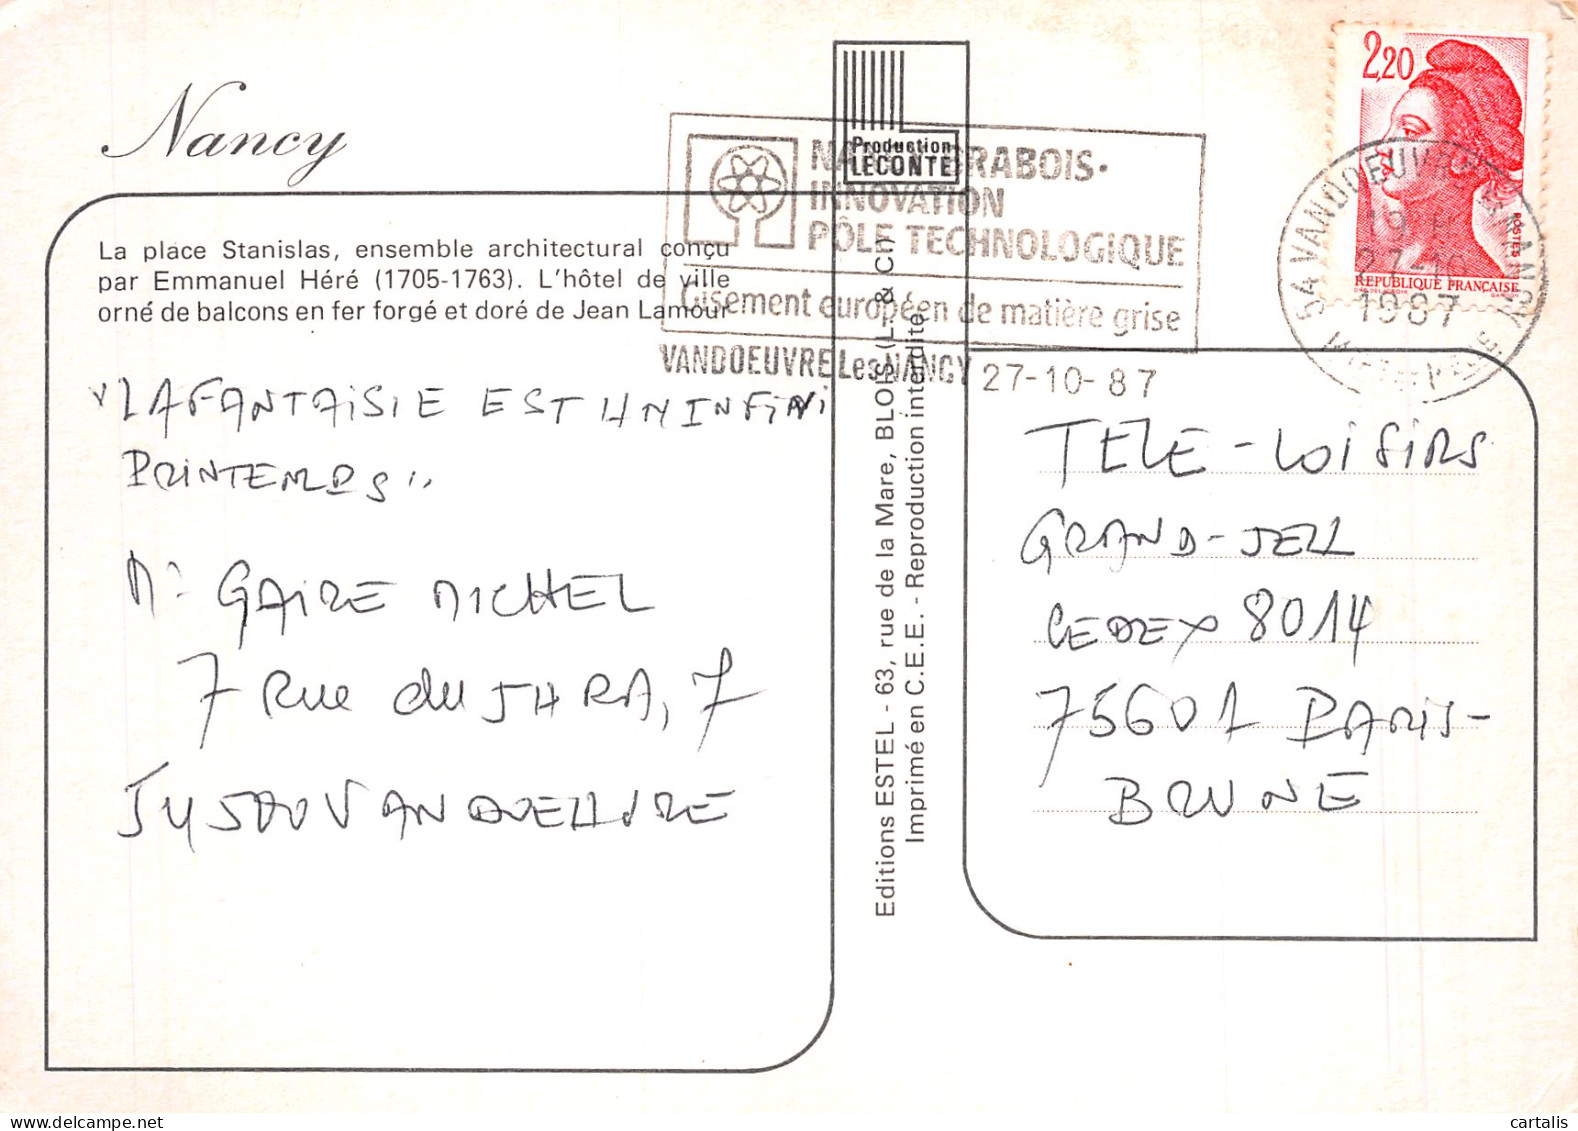 Nancy
La place Stanislas, ensemble architectural conçu
par Emmanuel Héré (1705-1763). L'hôtel de ville
orné de balcons en fer forgé et doré de Jean Lamour
"LA FANTAISIE EST UN INFINI
PRINTEMPS"
Mr GAIRE MICHEL
7 Rue du JURA, 7
VANDOEUVRE
Production
LECONTE
BRABOIS-
INNOVATION
PÔLE TECHNOLOGIQUE
Gisement européen de matière grise
VANDOEUVRE Les NANCY 27-10-87
Editions ESTEL - 63, rue de la Mare, BLOIS (L. & Ch)
Imprimé en C.E.E. - Reproduction interdite
2,20
POSTES
REPUBLIQUE FRANÇAISE
54 VANDOEUVRE
1987
TELE-LOISIRS
GRAND-JEU
CEDEX 8014
75601 PARIS-
BRUNE
cartalis
delcampe.net